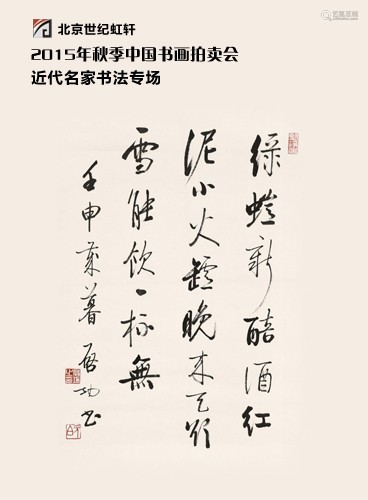 北京世纪虹轩
2015年秋季中国书画拍卖会
近代名家书法专场
绿螘新醅酒红
泥小火罏晚来天欲
雪能饮一杯無
壬申岁暮 启功书